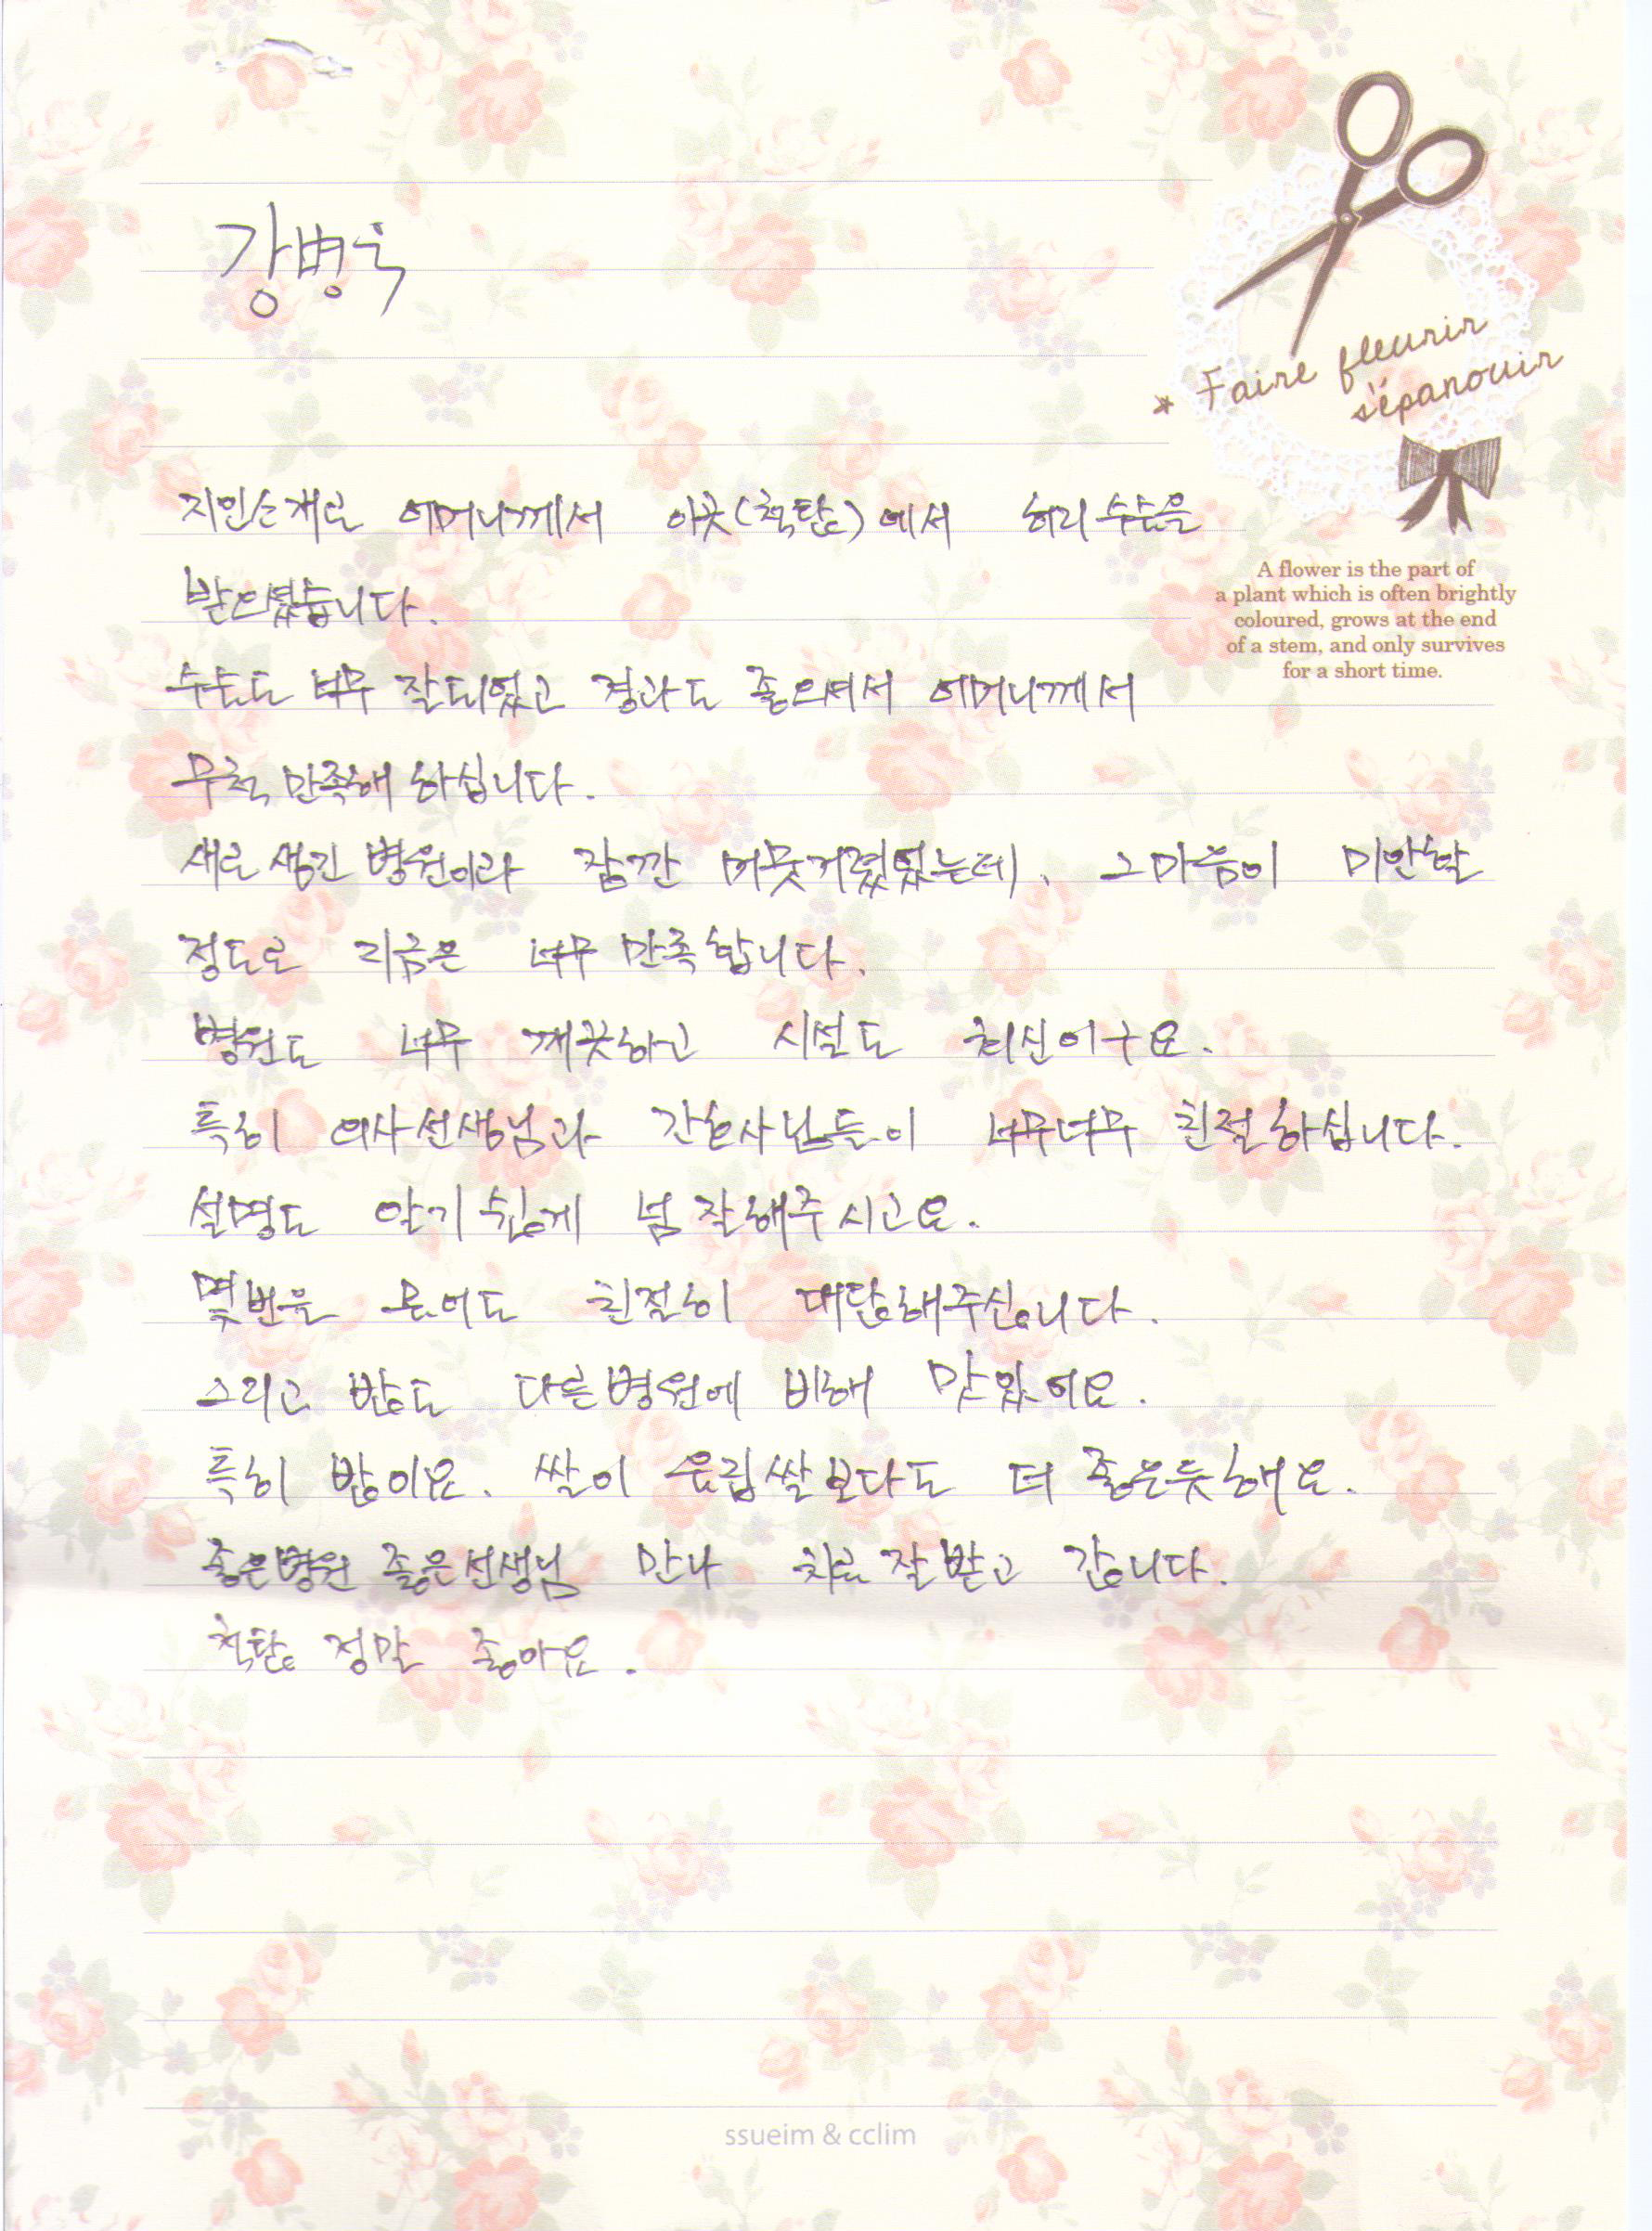 강병욱
* Faire fleurir
s'épanouir
지인소개로 어머니께서 이곳(척탑)에서 허리 수술을
받으셨습니다.
A flower is the part of
a plant which is often brightly
coloured, grows at the end
of a stem, and only survives
for a short time.
수술도 너무 잘되었고 경과도 좋으셔서 어머니께서
무척 만족해 하십니다.
새로 생긴 병원이라 잠깐 머뭇거렸었는데, 그마음이 미안할
정도로 지금은 너무 만족합니다.
병원도 너무 깨끗하고 시설도 최신이구요.
특히 의사선생님과 간호사님들이 너무너무 친절하십니다.
설명도 알기쉽게 넘 잘해주시고요.
몇번을 물어도 친절히 대답해주십니다.
그리고 밥도 다른병원에 비해 맛있어요.
특히 밥이요. 쌀이 유림쌀보다도 더 좋은듯해요.
좋은병원 좋은선생님 만나 치료 잘받고 갑니다.
척탑 정말 좋아요.
ssueim & cclim